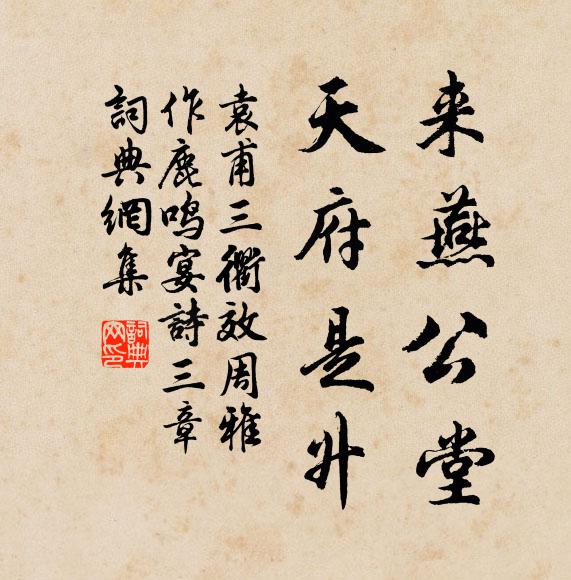 来燕公堂
天府是升
袁甫三衢效周雅
作鹿鸣宴詩三章
詞典網集
詞典网印